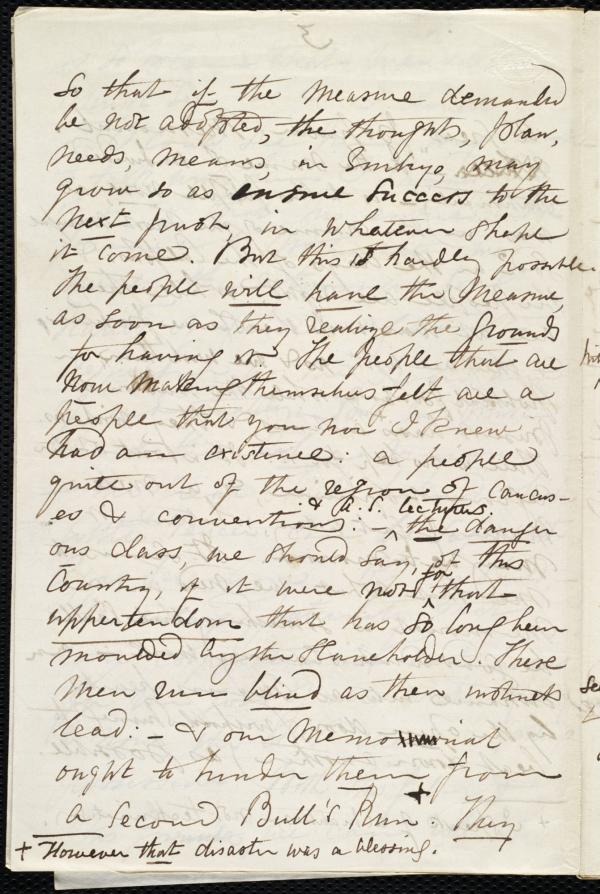 3
So that if the measure demanded
be not adopted, the thoughts, plan,
needs, means, in Embryo, may
grow so as ensure success to the
next push, in whatever shape
it come. But this is hardly possible.
The people will have the Measure,
as soon as they realize the grounds
for having it. The people that are
now making themselves felt are a
people that you nor I knew
had an existence: a people
quite out of the region of caucus-
es & conventions & A. S. lectures: - the danger
ous class, we should say, of this
Country, if it were not for that
uppertendom that has so long been
moulded by the Slaveholder. These
men run blind as their instincts
lead: - & our Memorial
ought to hinder them from
a second Bull's Run +. They
+ However that disaster was a blessing.